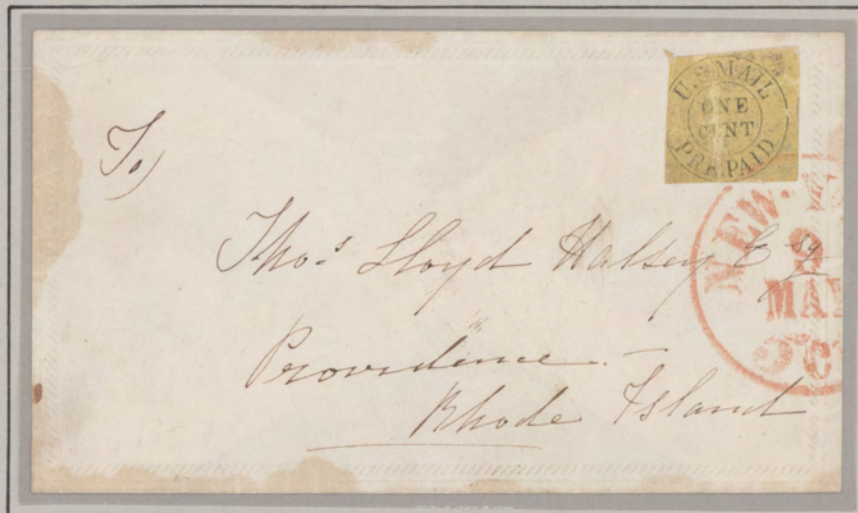 U.S MAIL
ONE
CENT
PRE-PAID
To
NEW
MAY
Thos Lloyd Halsey Esq
5 C
Providence.
Rhode Island